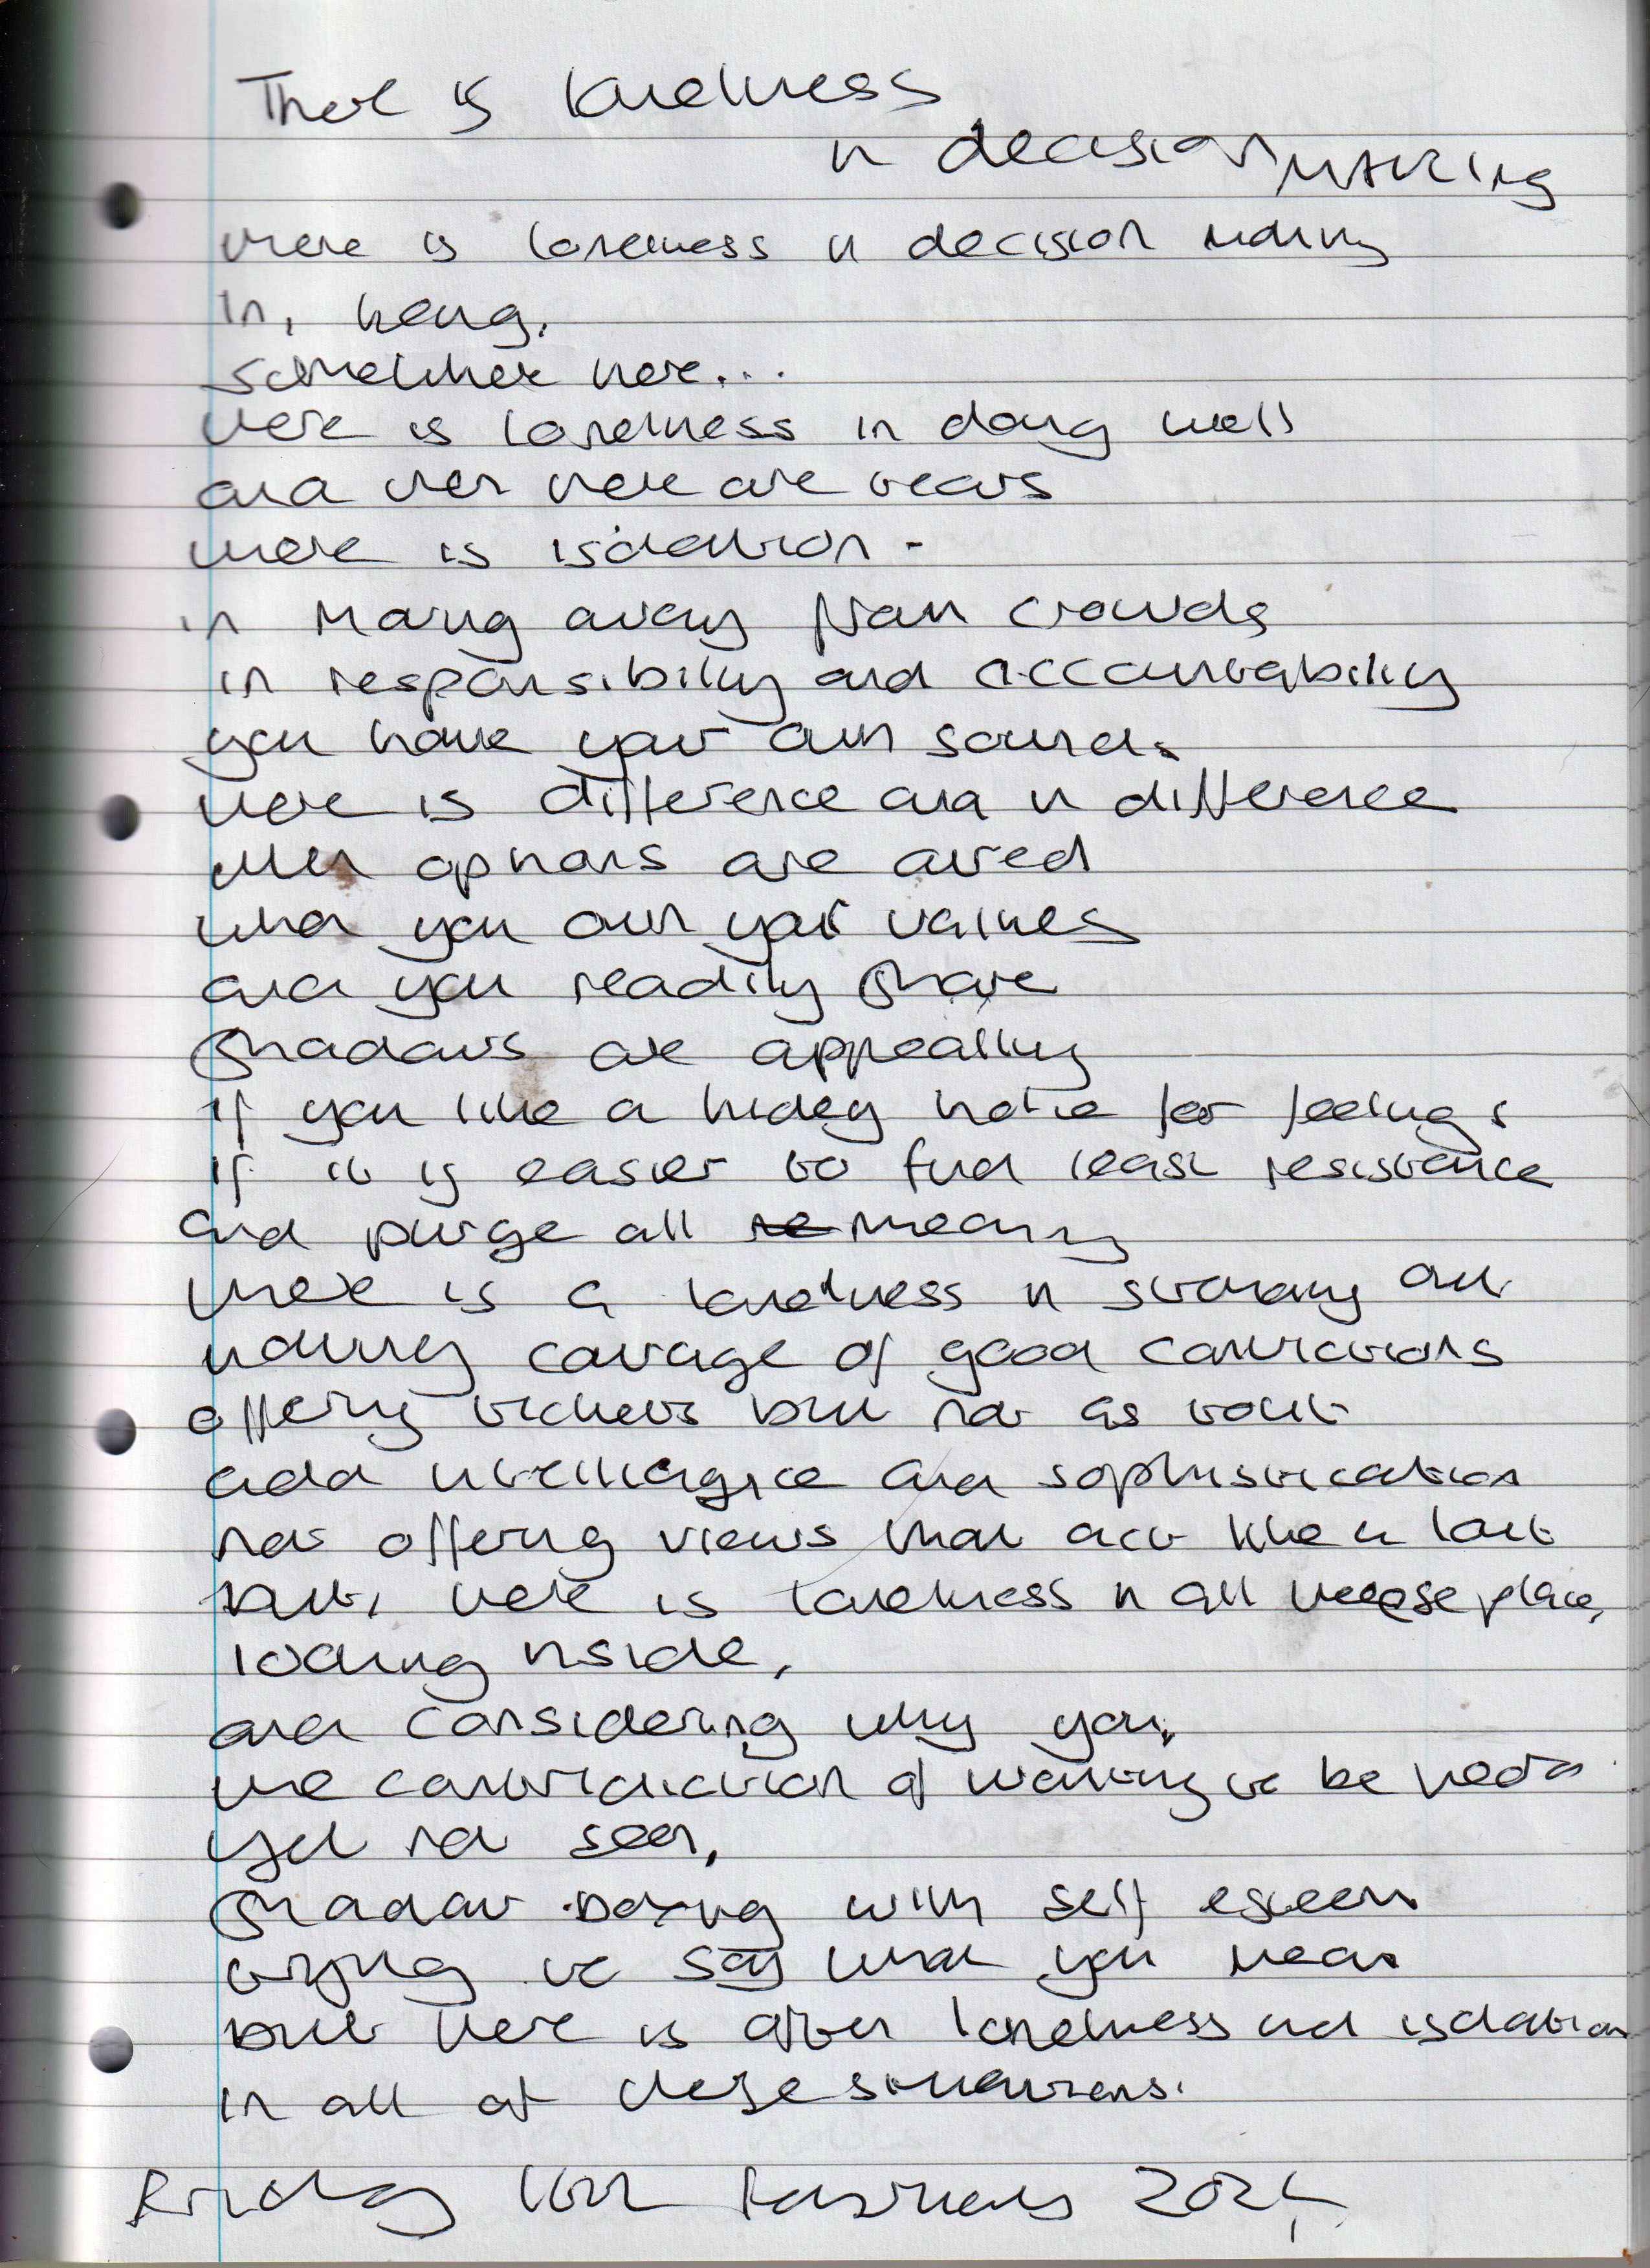 There is loneliness
in decision making
there is loneliness in decision making
in, being,
somewhere here...
there is loneliness in doing well
and when there are tears
there is isolation -
in moving away from crowds
in responsibility and accountability
you have your own sound.
there is difference and in difference
when opinions are aired
when you own your values
and you readily share
shadows are appealing
if you like a hidey hole for feelings
if it is easier to find least resistance
and purge all meaning
there is a loneliness in standing out
having courage of good convictions
offering but not as tout
add intelligence and sophistication
not offering views that act like a lout
but, there is loneliness in all these places,
looking inside,
and considering why you,
the contradiction of wanting to be heard
yet not seen,
shadow boxing with self esteem
trying to say what you mean
but there is often loneliness and isolation
in all of these situations.
Friday 16th February 2024